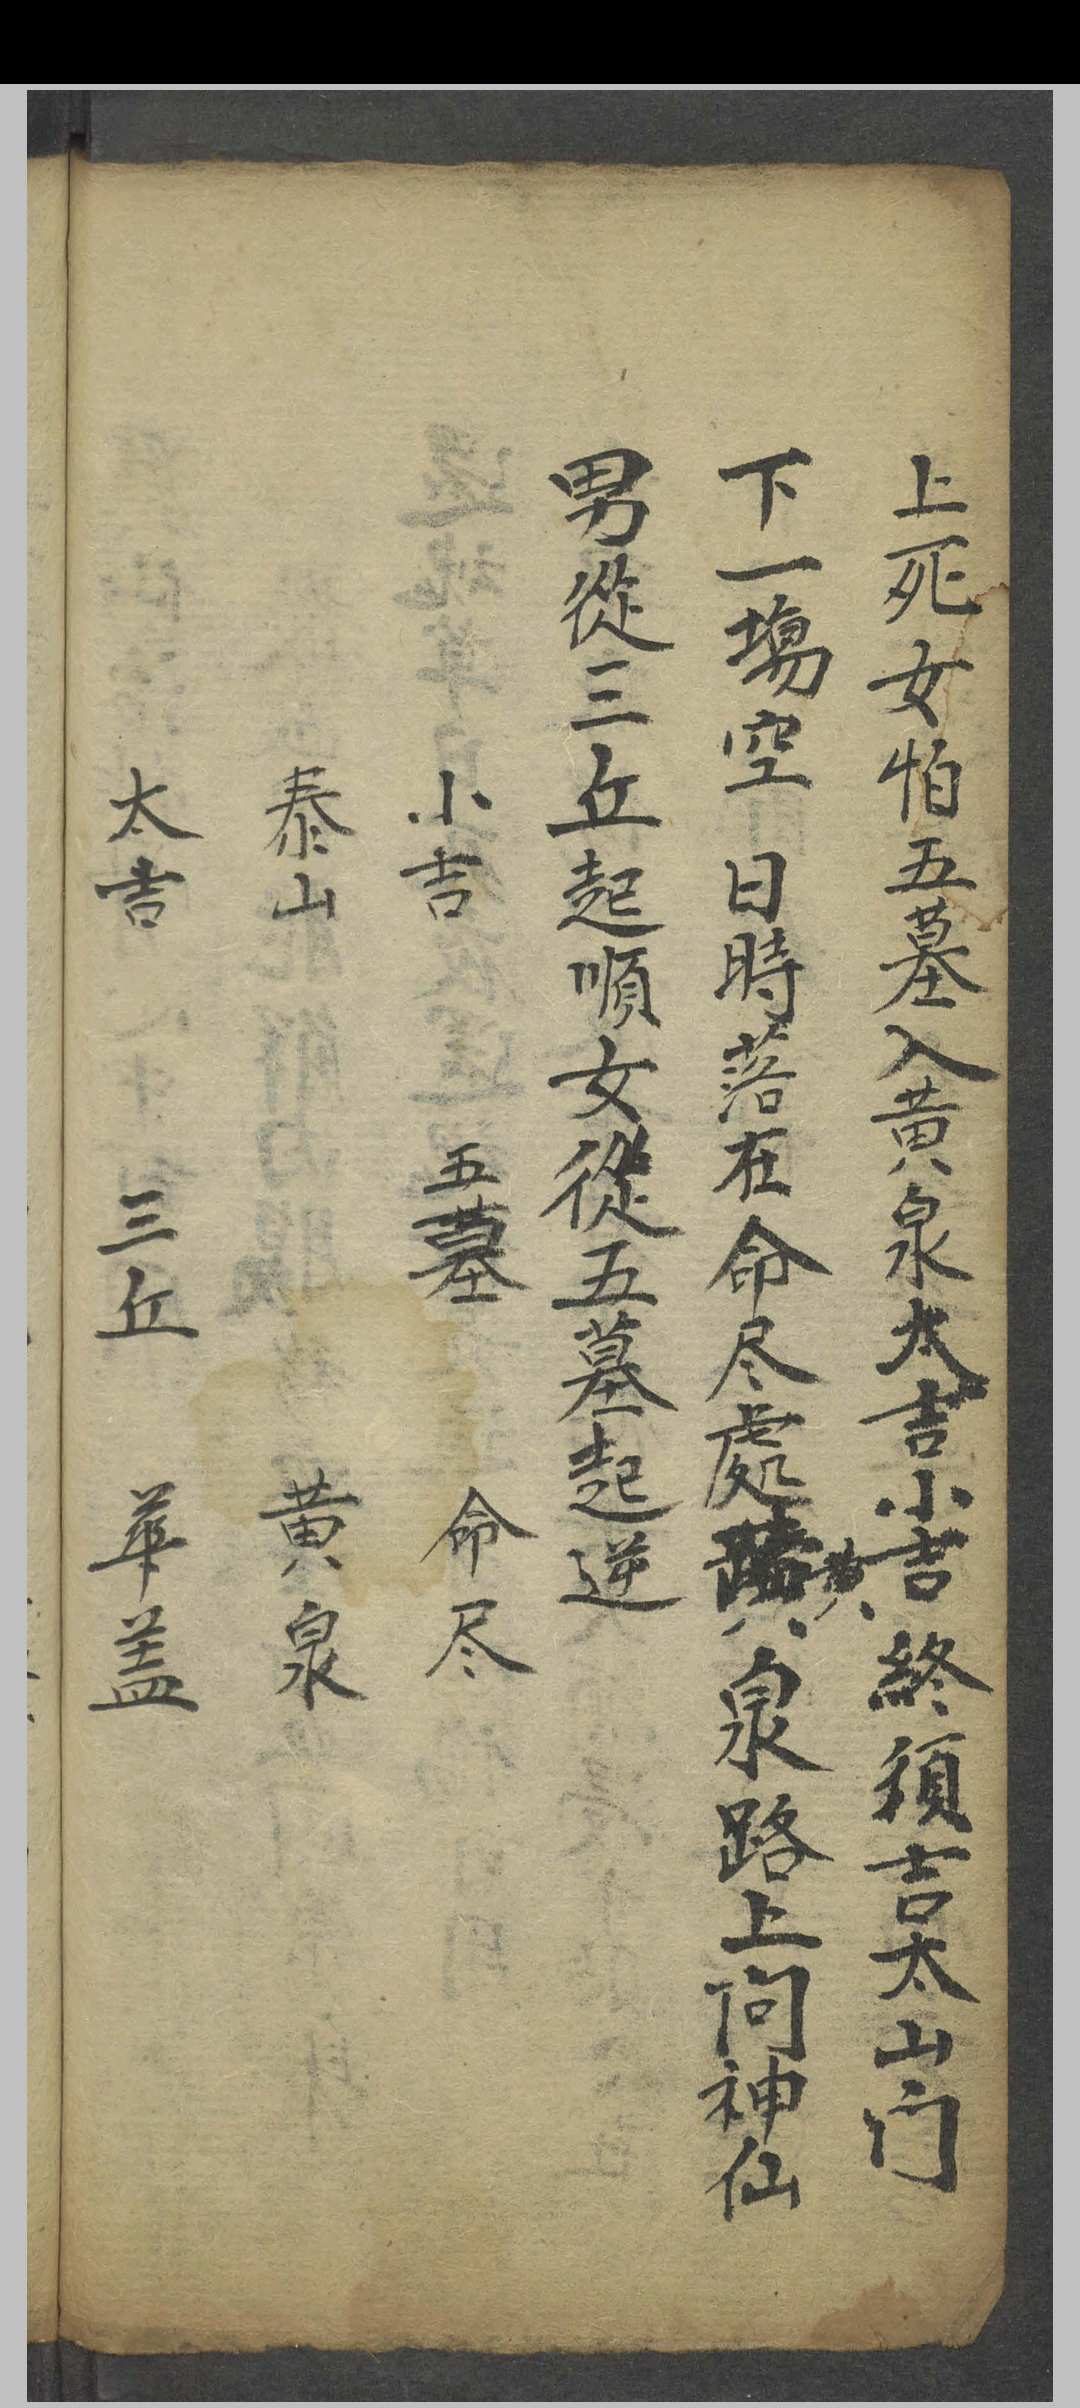 上死女怕五墓入黄泉太吉小吉終須吉太山门
下一塲空 日時落在命尽處黄泉路上问神仙
男從三丘起順女從五墓起逆
小吉 五墓 命尽
泰山 黄泉
太吉 三丘 華盖